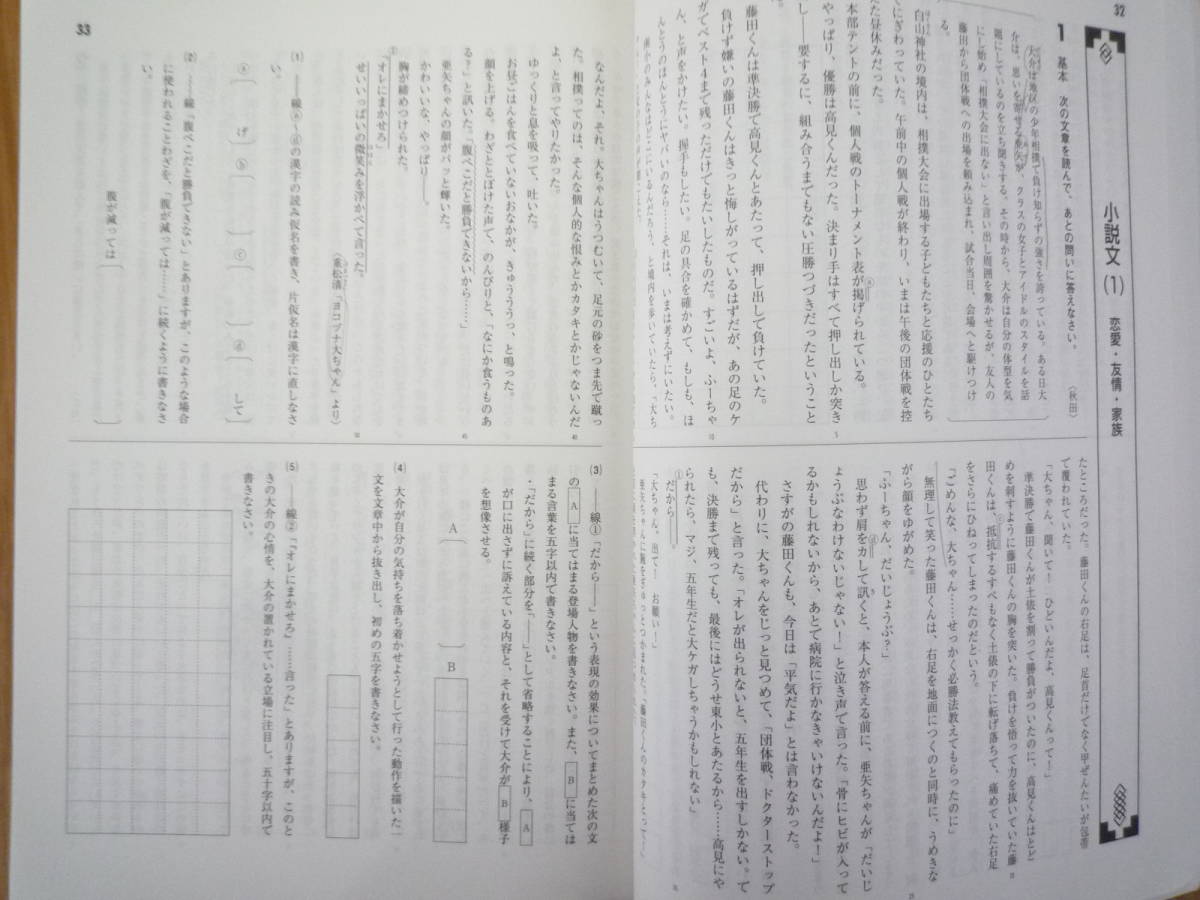 32
小説文(1) 恋愛・友情・家族
1 基本 次の文章を読んで、あとの問いに答えなさい。
〈秋田〉
大介は地区の少年相撲で負け知らずの強さを誇っている。ある日大
介は、思いを寄せる亜矢が、クラスの女子とアイドルのスタイルを話
題にしているのを立ち聞きする。その時から、大介は自分の体型を気
にし始め「相撲大会に出ない」と言い出し周囲を驚かせるが、友人の
藤田から団体戦への出場を頼み込まれ、試合当日、会場へと駆けつけ
る。
白山神社の境内は、相撲大会に出場する子どもたちと応援のひとたち
でにぎわっていた。午前中の個人戦が終わり、いまは午後の団体戦を控
えた昼休みだった。
本部テントの前に、個人戦のトーナメント表が掲げられている。
やっぱり、優勝は高見くんだった。決まり手はすべて押し出しか突き
出し――要するに、組み合うまでもない圧勝つづきだったということ
藤田くんは準決勝で高見くんとあたって、押し出しで負けていた。
負けず嫌いの藤田くんはきっと悔しがっているはずだが、あの足のケ
ガでベスト4まで残っただけでもたいしたものだ。すごいよ、ふーちゃ
ん、と声をかけたい。握手もしたい。足の具合を確かめて、もしも、ほ
んとうのほんとうにヤバいのなら……それは、いまは考えずにいたい。
たところだった。藤田くんの右足は、足首だけでなく甲ぜんたいが包帯
で覆われていた。
「大ちゃん、聞いて! ひどいんだよ、高見くんって!」
準決勝で藤田くんが土俵を割って勝負がついたのに、高見くんはとど
めを刺すように藤田くんの胸を突いた。負けを悟って力を抜いていた藤
田くんは、抵抗するすべもなく土俵の下に転げ落ちて、痛めていた右足
をさらにひねってしまったのだという。
「ごめんな、大ちゃん……せっかく必勝法教えてもらったのに」
無理して笑った藤田くんは、右足を地面につくのと同時に、うめきな
がら顔をゆがめた。
「ふーちゃん、だいじょうぶ?」
思わず肩をカして訊くと、本人が答える前に、亜矢ちゃんが「だいじ
ょうぶなわけないじゃない!」と泣き声で言った。「骨にヒビが入って
るかもしれないから、あとで病院に行かなきゃいけないんだよ!」
さすがの藤田くんも、今日は「平気だよ」とは言わなかった。
代わりに、大ちゃんをじっと見つめて、「団体戦、ドクターストップ
だから」と言った。「オレが出られないと、五年生を出すしかない。で
も、決勝まで残っても、最後にはどうせ東小とあたるから……高見にや
られたら、マジ、五年生だと大ケガしちゃうかもしれない」
①だから――。
「大ちゃん、出て! お願い!」
33
なんだよ、それ。大ちゃんはうつむいて、足元の砂をつま先で蹴っ
た。相撲ってのは、そんな個人的な恨みとかカタキとかじゃないんだ
よ、と言ってやりたかった。
ゆっくりと息を吸って、吐いた。
お昼ごはんを食べていないおなかが、きゅうううっ、と鳴った。
顔を上げる。わざととぼけた声で、のんびりと、「なにか食うものあ
る?」と訊いた。「腹ぺこだと勝負できないから……」
亜矢ちゃんの顔がパッと輝いた。
かわいいな、やっぱり――。
胸が締めつけられた。
②「オレにまかせろ」
せいいっぱいの微笑みを浮かべて言った。
〈重松清「ヨコヅナ大ちゃん」より〉
(1) ――線ⓐ～ⓓの漢字の読み仮名を書き、片仮名は漢字に直しなさ
い。
ⓐ げ ⓑ ⓒ ⓓ して
(2) ――線「腹ぺこだと勝負できない」とありますが、このような場合
に使われることわざを、「腹が減っては……」に続くように書きなさ
い。
腹が減っては
(3) ――線①「だから――」という表現の効果についてまとめた次の文
の A に当てはまる登場人物を書きなさい。また、 B に当ては
まる言葉を五字以内で書きなさい。
・「だから」に続く部分を、「――」として省略することにより、 A
が口に出さずに訴えている内容と、それを受けて大介が B 様子
を想像させる。
A B
(4) 大介が自分の気持ちを落ち着かせようとして行った動作を描いた一
文を文章中から抜き出し、初めの五字を書きなさい。
(5) ――線②「「オレにまかせろ」……言った」とありますが、このと
きの大介の心情を、大介の置かれている立場に注目し、五十字以内で
書きなさい。